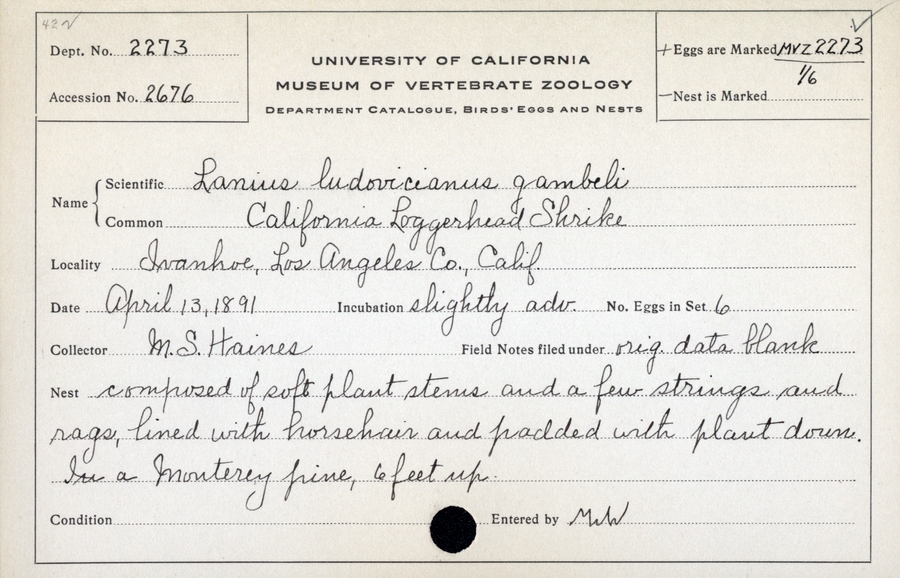 42
Dept. No. 2273
Accession No. 2676
UNIVERSITY OF CALIFORNIA
MUSEUM OF VERTEBRATE ZOOLOGY
DEPARTMENT CATALOGUE, BIRDS' EGGS AND NESTS
+Eggs are Marked MVZ 2273
1/6
—Nest is Marked
Name
Scientific Lanius ludovicianus gambeli
Common California Loggerhead Shrike
Locality Ivanhoe, Los Angeles Co., Calif.
Date April 13, 1891 Incubation slightly adv. No. Eggs in Set 6
Collector M.S. Haines Field Notes filed under orig. data blank
Nest composed of soft plant stems and a few strings and
rags, lined with horsehair and padded with plant down.
In a Monterey pine, 6 feet up.
Condition Entered by